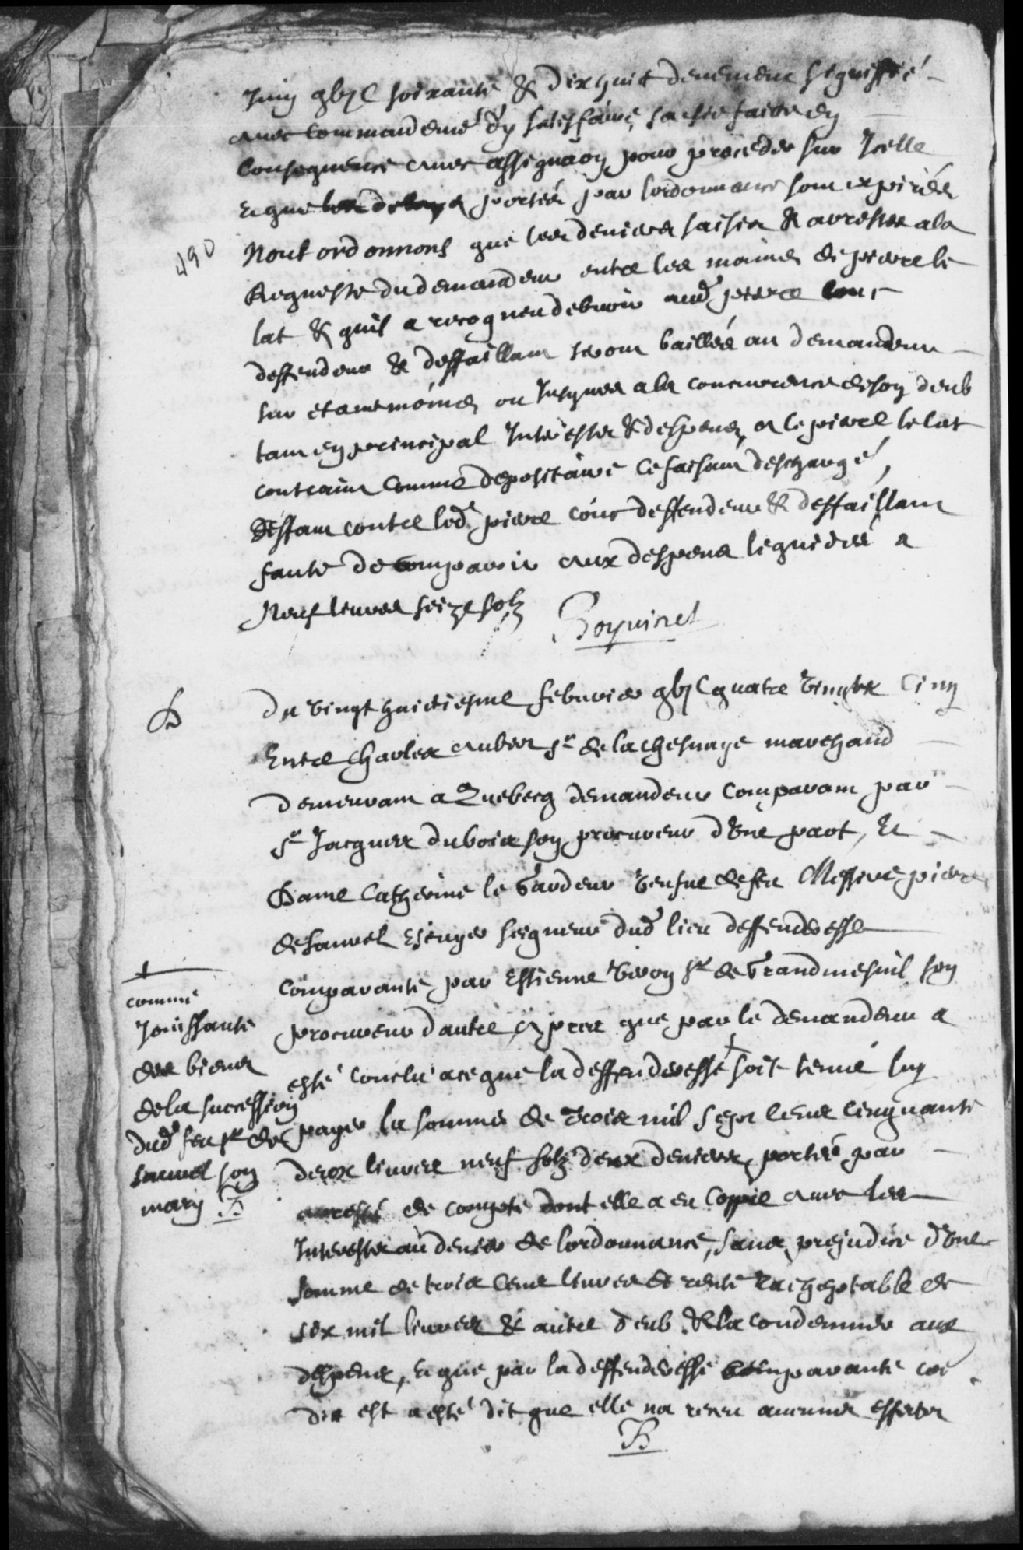 Juin gbjC soixante & dix huit deuement signiffié
avec commandemt dy satisfaire, saisie faite en
consequence avec assignaõn pour proceder sur Icelle
Et que les delays portés par lordonnance sont expirés
490
Nous ordonnons que les deniers saisis & arrestés a la
Requeste du demandeur entre les mains de pierre le
lat & quil a recogneu debvoir aud. pierre
deffendeur & deffaillant seront baillés au demandeur
sur et au moins ou Jusques a la concurrence de son deub
tant en principal Interests & despens, a ce pierre le lat
contraint comme depositaire ce faisant deschargé,
deffaut contre led. pierre deffendeur & deffaillant
faute de comparoir aux despens liquidés a
Neuf livres seize solz
Du vingt huictiesme febvrier gbjC quatre vingts Cinq
Entre Charles Aubert sr. de la Chesnaye marchand
demeurant a Quebecq demandeur comparant par
sr. Jacques dubois son procureur d'Une part, Et
Dame Catherine le Gardeur veufve de feu Messire pierre
de Saurel Escuyer seigneur dud. lieu deffenderesse
comparante par Estienne Veron sr. de Grandmesnil son
procureur d'autre part que par le demandeur a
esté conclu a ce que la deffenderesse + soit tenue luy
payer la somme de trois mil sept cens cinquante
deux livres neuf solz deux deniers portée par
arresté de compte dont elle a eu Coppie avec les
Interests au denier de lordonnance, sans prejudice d'Une
somme de trois cens livres de rente racheptable de
six mil livres & autre deub & la condemner aux
despens, Et que par la deffenderesse comparante coe
dit est a esté dit que elle na receu aucuns effects
+
comme
Jouissante
des biens
de la succession
dud. feu sr. de
Saurel son
mary